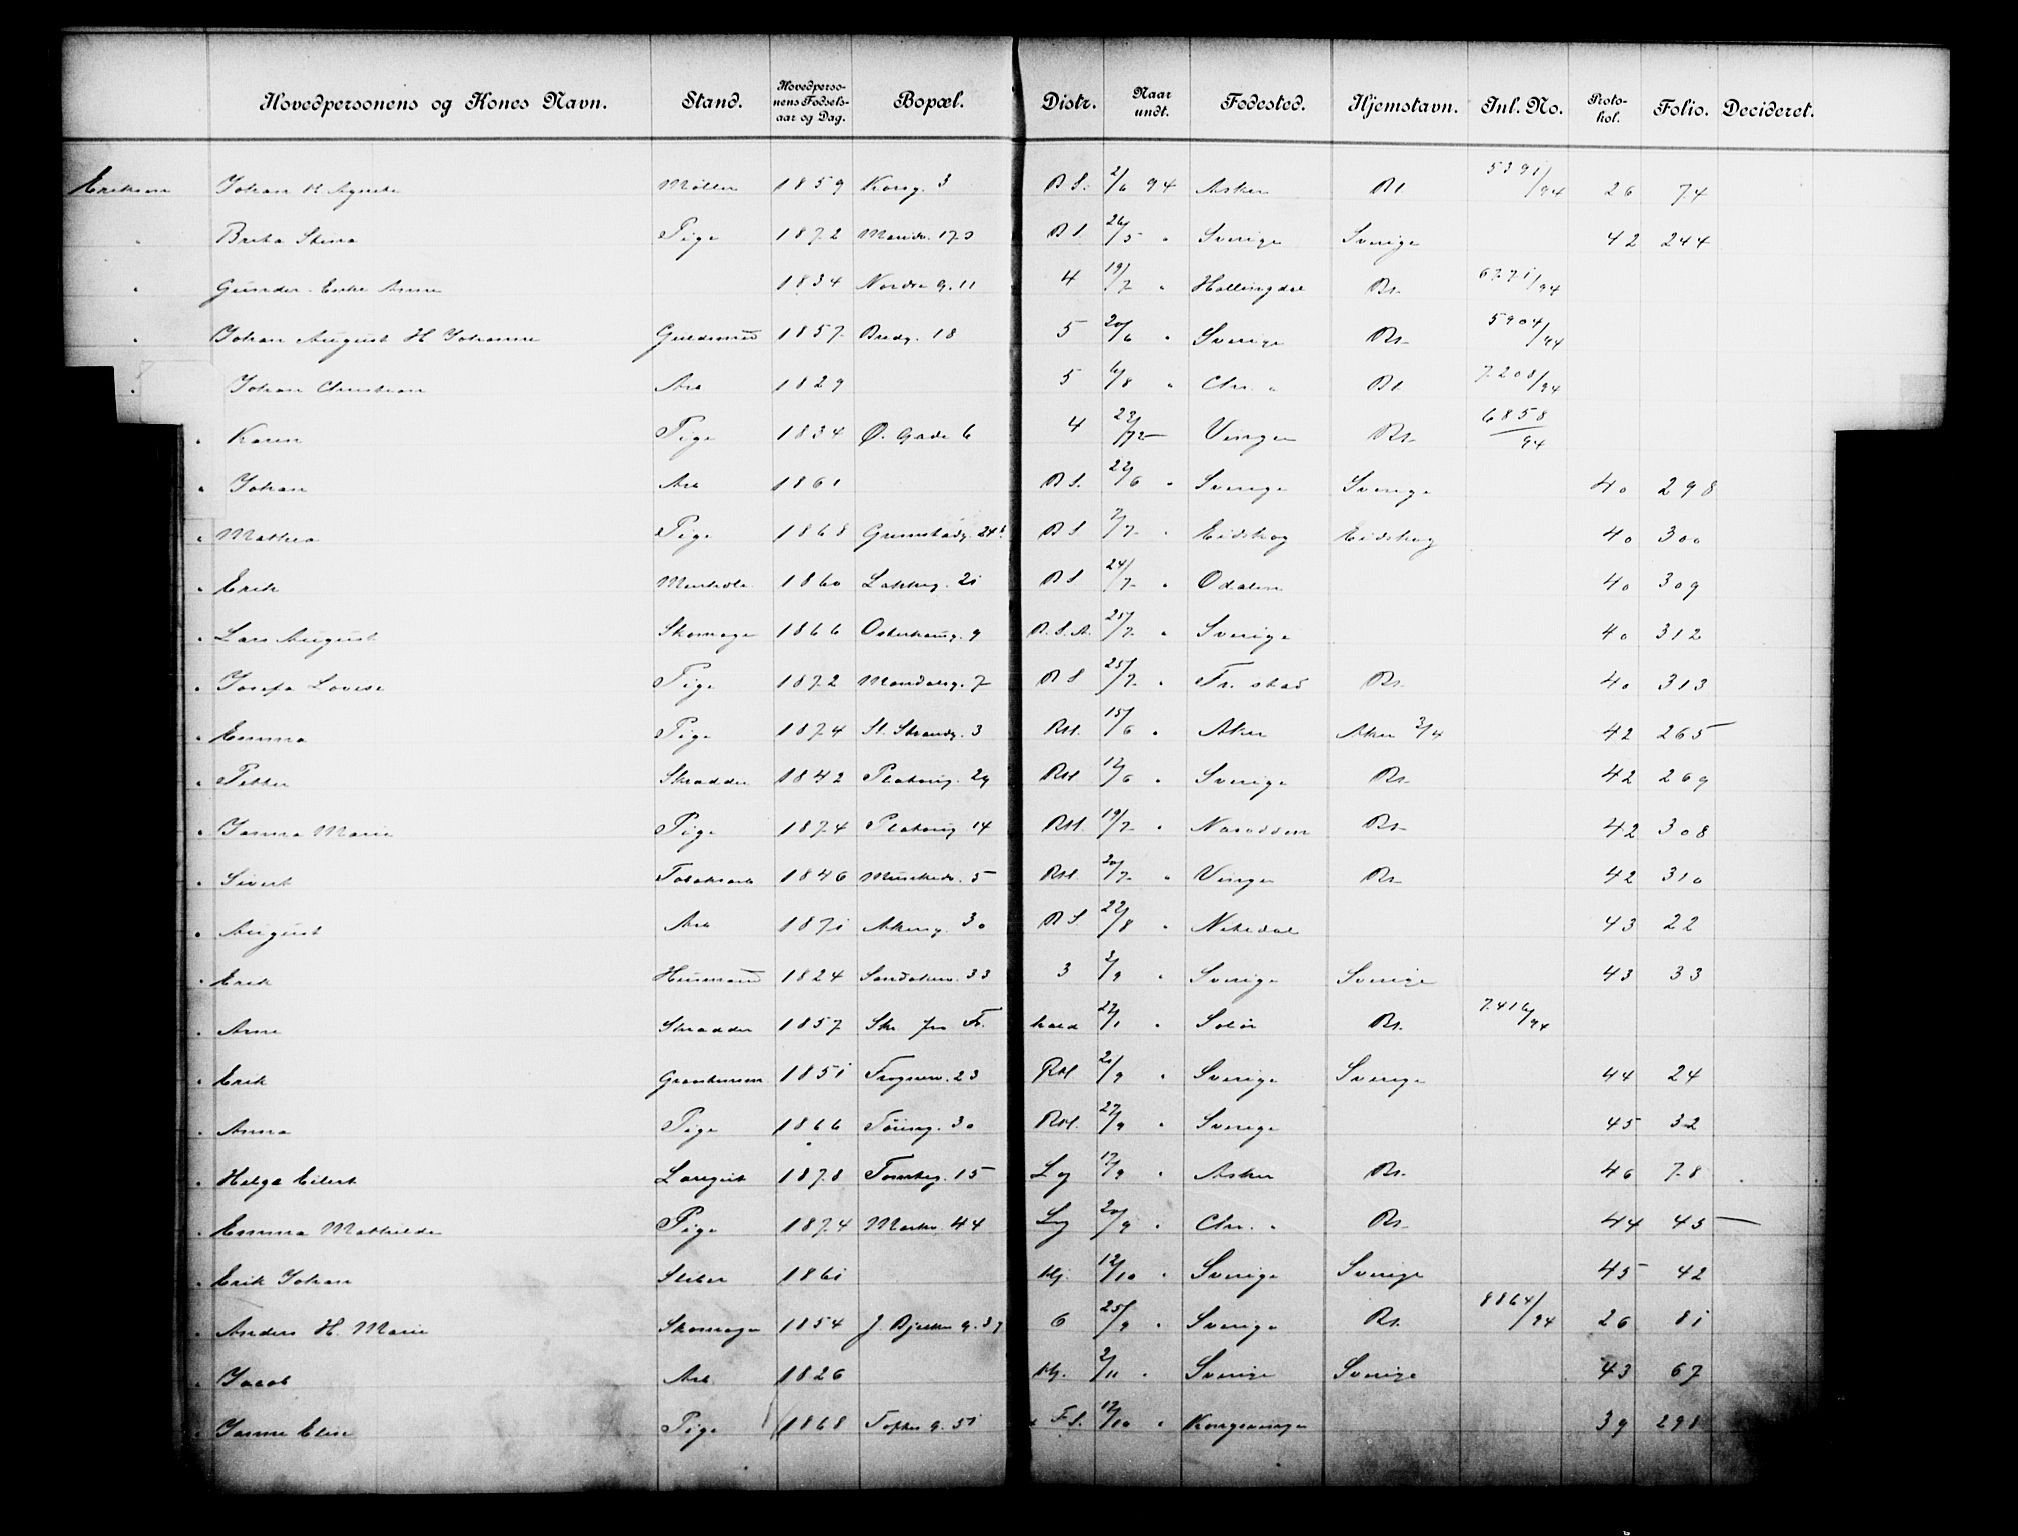 Hovedpersonens og Kones Navn. Stand. Hovedpersonens Fødselsaar og Dag. Bopæl. Distr. Naar undt. Fødested. Hjemstavn. Inl. No. Protokol. Folio. Decideret.
Eriksen Johan H Agnete Møller 1859 Korsg. 3 B S. 2/6 94 Asker Bt 5391/94 26 74
" Brita Stina Pige 1872 Maridv. 173 B S. 26/5 " Sverige Sverige 42 244
" Gunder. Enke Anne 1834 Nordre g. 11 4 19/7 " Hallingdal Bt. 6771/94
" Johan August H Johanne Guldsmed 1857 Bredg. 18 5 20/6 " Sverige Bt. 5904/94
" Johan Christian Arb 1829 5 6/8 " Chr. a Bt 7208/94
" Karen Pige 1834 Ø. Gade 6 4 Vinger Bt. 6858/94
" Johan Arb 1861 B S. 22/6 " Sverige Sverige 40 298
" Mathea Pige 1868 Grimstadg. 24b B S 7/7 " Eidskog Eidskog 40 300
" Erik 1860 Lakkeg. 21 B S 24/7 " Odalen 40 309
" Lars August Skomager 1866 Osterhausg. 9 B. S. A. 25/7 " Sverige 40 312
" Josefa Lovise Pige 1872 Mandalsg. 7 B S 25/7 " Fr. stad Bt. 40 313
" Emma Pige 1874 St. Strandg. 3 RM. 15/6 " Aker Aker 3/4 42 265
" Petter Skrædder 1842 Platousg. 29 RM 12/6 " Sverige Bt. 42 269
" Janna Marie Pige 1874 Platousg 14 RM. 19/7 " Næsodden Bt. 42 308
" Sivert Tobaksarb 1846 Munkedv. 5 RM. 20/7 " Vinger Bt. 42 310
" August Arb 1871 Akersg. 30 B S. 22/8 " Nitedal 43 22
" Erik Husmand 1824 Sandakerv. 33 3 3/9 " Sverige Sverige 43 33
" Arne Skrædder 1857 Skr fra Fr. hald 22/1 " Solør Bt. 7416/94
" Erik Graastensm 1851 Frognerv. 23 RM 21/9 " Sverige Sverige 44 24
" Anna Pige 1866 Tøieng. 30 RM. 27/9 " Sverige 45 32
" Helga Eilert Løsgjet 1878 Tomteg. 15 Lg 17/9 " Asker Bt. 46 78
" Emma Mathilde Pige 1874 Markv. 44 Lg 20/9 " Chr. a Bt. 44 45
" Erik Johan Sliber 1861 Hj. 12/10 " Sverige Sverige 45 42
" Anders H. Marie Skomager 1854 J. Bjelkes g. 37 6 25/9 " Sverige Bt. 8864/94 26 81
" Jacob Arb. 1826 Hj. 2/11 " Sverige Sverige 43 67
" Janne Elise Pige 1868 Toftes g. 51 F S. 12/10 " Kongsvinger 39 291